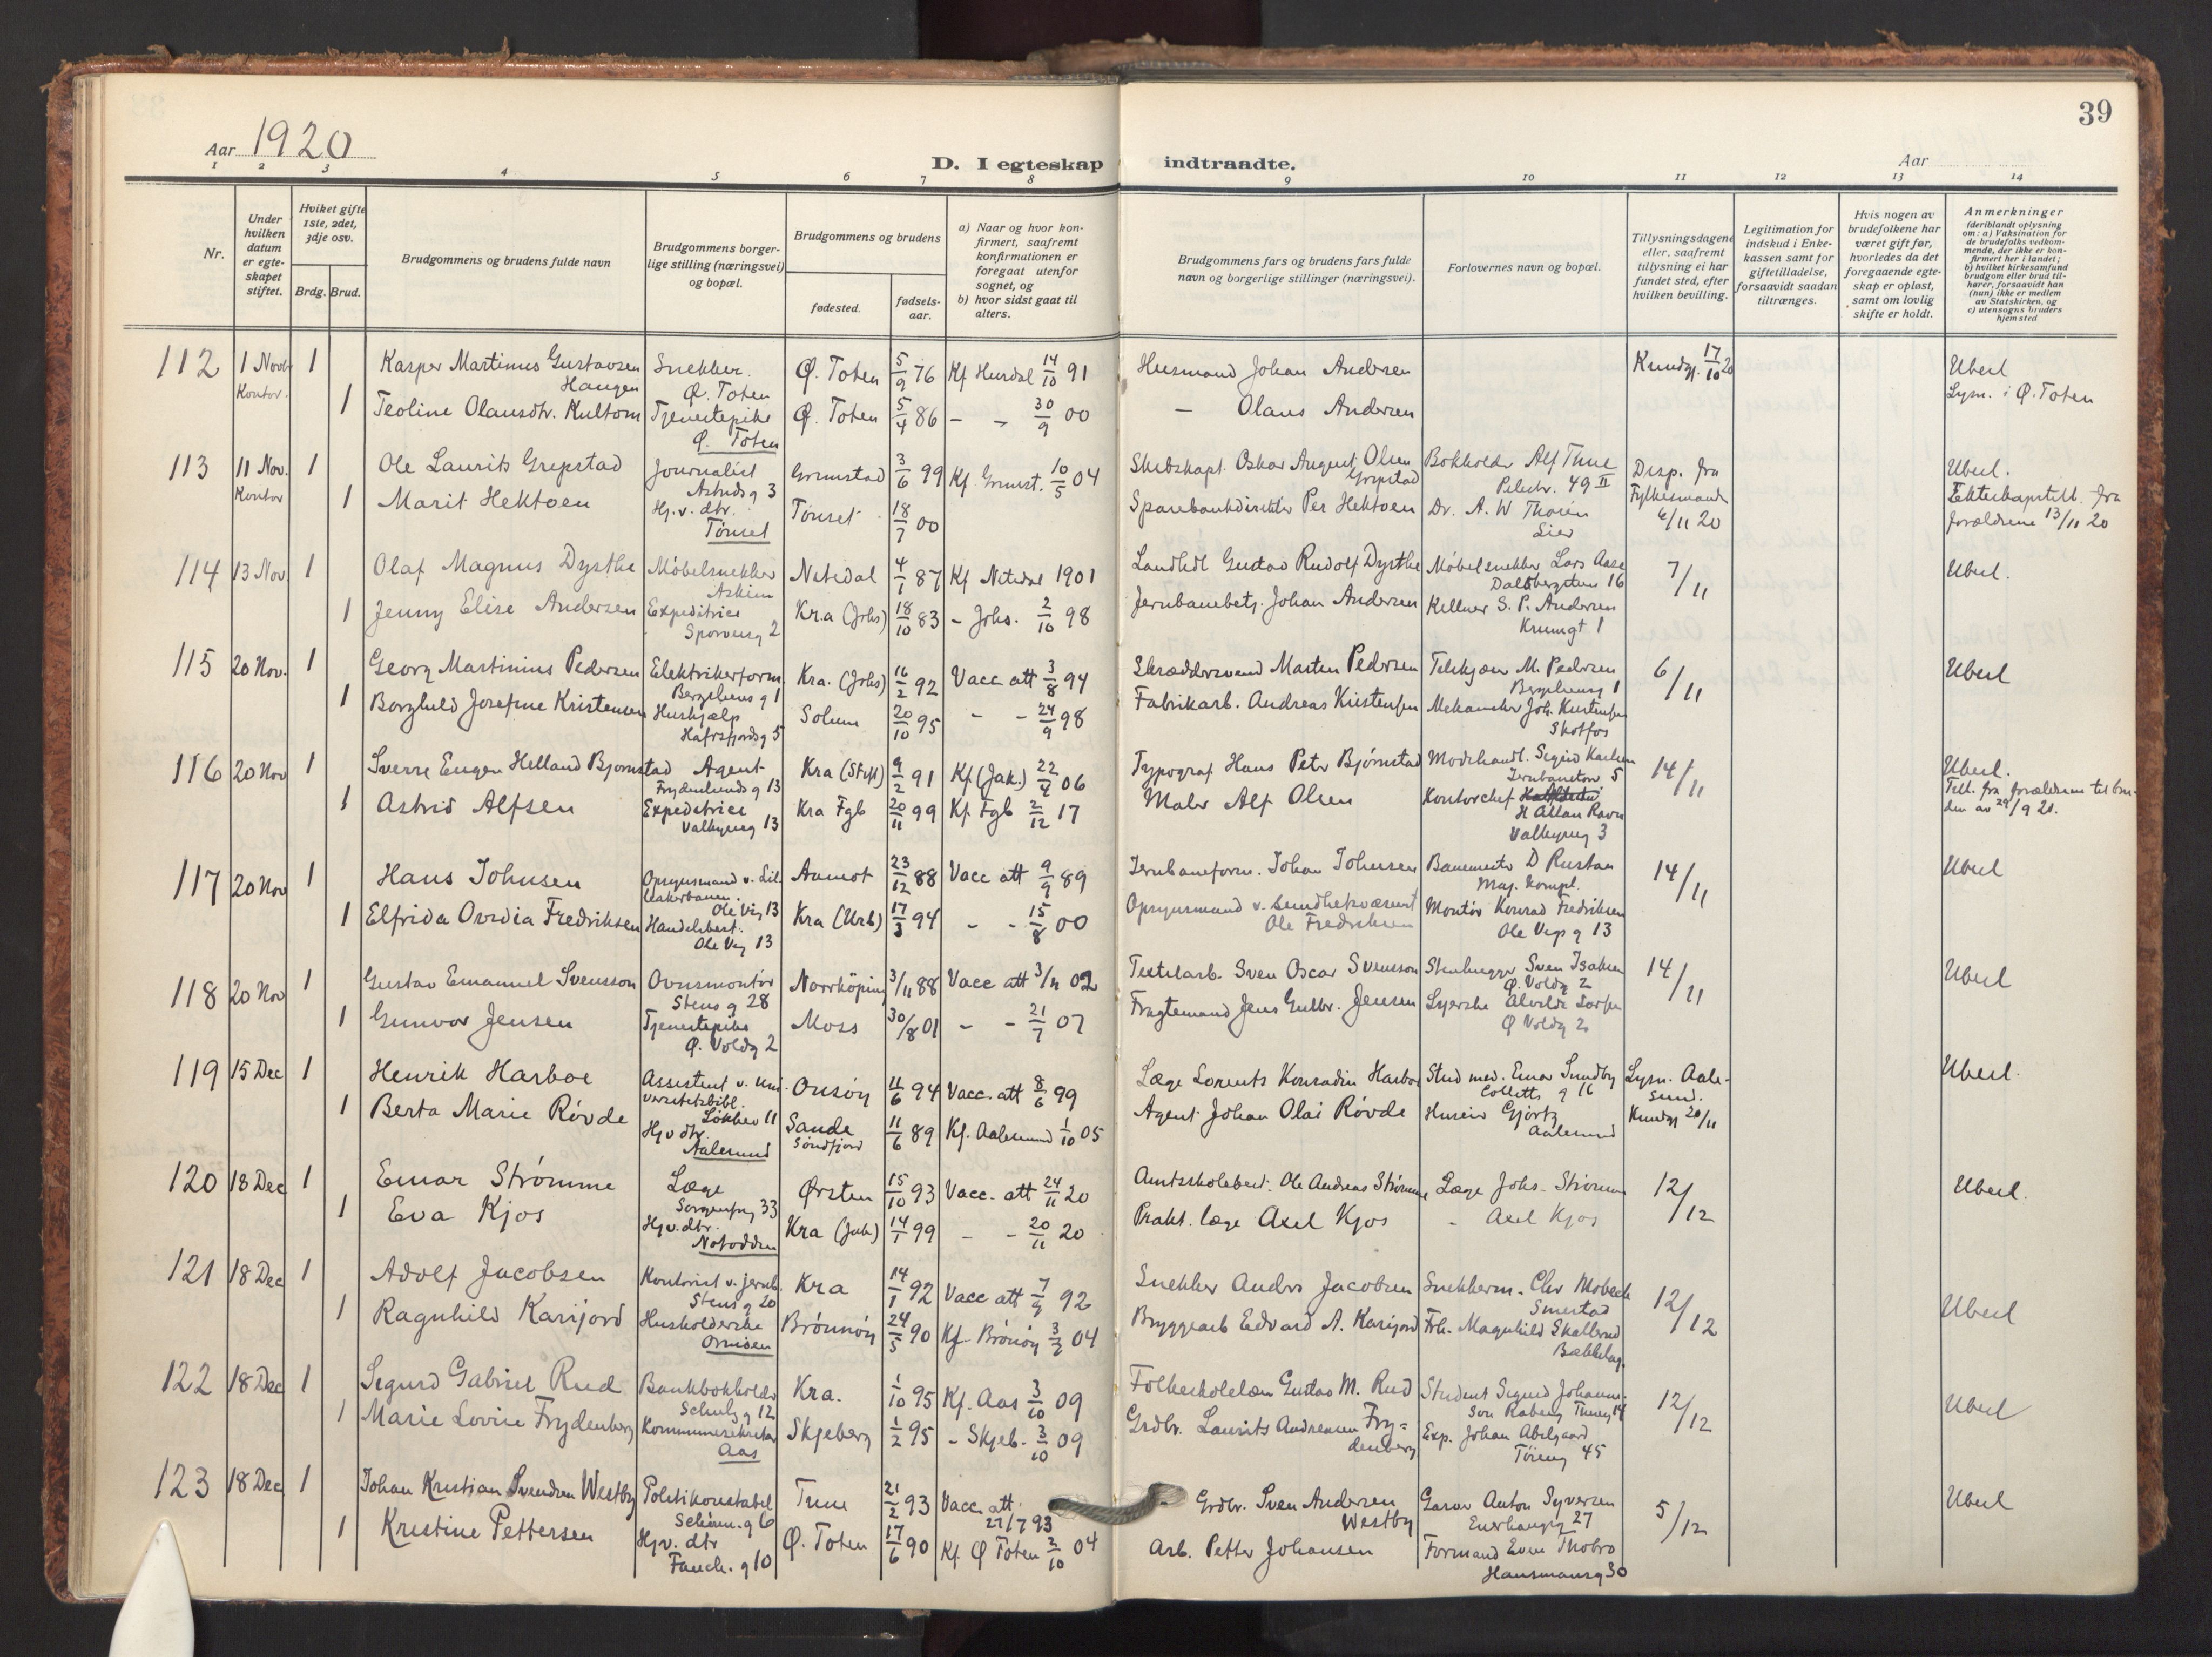 39
Aar 1920
D. I egteskap indtraadte.
Aar
1 2 3 4 5 6 7 8 9 10 11 12 13 14
Nr.
Under hvilken datum er egte-skapet stiftet.
Hviket gifte 1ste, 2det, 3dje osv.
Brdg. Brud.
Brudgommens og brudens fulde navn
Brudgommens borger-lige stilling (næringsvei) og bopæl.
Brudgommens og brudens
fødested.
fødsels-aar.
a) Naar og hvor kon-firmert, saafremt konfirmationen er foregaat utenfor sognet, og
b) hvor sidst gaat til alters.
Brudgommens fars og brudens fars fulde navn og borgerlige stillinger (næringsvei).
Forlovernes navn og bopæl.
Tillysningsdagene eller, saafremt tillysning ei har fundet sted, efter hvilken bevilling.
Legitimation for indskud i Enke-kassen samt for giftetilladelse, forsaavidt saadan tiltrænges.
Hvis nogen av brudefolkene har været gift før, hvorledes da det foregaaende egte-skap er opløst, samt om lovlig skifte er holdt.
Anmerkninger (deriblandt oplysning om: a) Vaksination for de brudefolks vedkom-mende, der ikke er kon-firmert her i landet; b) hvilket kirkesamfund brudgom eller brud til-hører, forsaavidt han (hun) ikke er medlem av Statskirken, og c) utensogns bruders hjemsted
112 1 Nov. Kontor. 1 Kasper Martinus Gustavsen Haugen Snekker. Ø. Toten Ø. Toten 5/9 76 Kf Hurdal 14/10 91 Husmand Johan Andersen Kundgj. 17/10 20 Uberl Lysn. i Ø. Toten
1 Teoline Olausdtr. Kultom Tjenestepike Ø. Toten Ø. Toten 5/4 86 - - 30/9 00 - Olaus Andersen
113 11 Nov. Kontor 1 Ole Laurits Grepstad Journalist Astrids g 3 Grimstad 3/6 99 Kf. Grimst. 10/5 04 Skibskapt. Oskar August Olsen Grepstad Bokholder Alf Thue Pilestr. 49 II Disp. fra Fylkesmand 6/11 20 Uberl. Ekteskapstill. fra forældrene 13/11 20
1 Marit Hektoen Hj.v. dtr. Tønset Tønset 18/7 00 Sparebankdirektør Per Hektoen Dr. A. W Thoren Lier
114 13 Nov. 1 Olaf Magnus Dysthe Møbelsnekker Askim Nitedal 4/1 87 Kf Nitedal 1901 Landhdl Gustav Rudolf Dysthe Møbelsnekker Lars Aase Dalsbergstien 16 7/11 Uberl.
1 Jenny Elise Andersen Expeditrice Sporveisg 2 Kr.a (Johs) 18/10 83 - Johs. 2/10 98 Jernbanebetj. Johan Andersen Kellner S. P. Andersen Krumgt 1
115 20 Nov. 1 Georg Martinius Pedersen Elektrikerform. Bergsliens g 1 Kra. (Johs) 16/2 92 Vacc att 3/8 94 Skræddersvend Marten Pedersen Telekjøn M. Pedersen Bergliensg 1 6/11 Uberl
1 Borghild Josefine Kristensen Hushjælp Hafrsfjordsg 5 Solum 20/10 95 - - 24/9 98 Fabrikarb. Andreas Kristensen Mekaniker Joh. Kristensen Skotfos
116 20 Nov 1 Sverre Eugen Helland Bjørnstad Agent Frydenlunds g 13 Kra (Steff) 9/2 91 Kf (Jak.) 22/4 06 Typograf Hans Peter Bjørnstad Modehandl. Sigrid Karlsen Jernbanetorv 5 14/11 Uberl. Till. fra forældrene til bru-den av 29/9 20.
1 Astrid Alfsen Expeditrice Valkyrieg 13 Kra Fgb 20/11 99 Kf Fgb 2/12 17 Maler Alf Olsen Kontorchef H Allan Ravn Valkyrieg 3
117 20 Nov 1 Hans Johnsen Opsynsmand v. Lil-leakerbanen. Ole Vig 13 Aamot 23/12 88 Vacc att 9/9 89 Jernbaneform. Johan Johnsen Banemester D Rustan Maj. kompl. 14/11 Uberl
1 Elfrida Ovidia Fredriksen Handelsbest. Ole Vig 13 Kra (Urb) 17/3 94 - - 15/8 00 Opsynsmand v. sundhetsvæsenet Ole Fredriksen Montør Konrad Fredriksen Ole Vigs g 13
118 20 Nov 1 Gustav Emanuel Svensson Ovnsmontør Stens g 28 Norrköping 3/11 88 Vacc att 3/11 02 Textilarb. Sven Oscar Svensson Stenhugger Sven Isaksen Ø. Voldg 2 14/11 Uberl
1 Gunvor Jensen Tjenestepike Ø. Voldg 2 Moss 30/8 01 - - 21/7 07 Fragtemand Jens Gulbr. Jensen Syerske Ø Voldg 2
119 15 Dec 1 Henrik Harboe Assistent v. uni-versitetsbibl. Løkkev 11 Onsøy 11/6 94 Vacc. att 8/6 99 Læge Lorents Konradin Harboe Stud med. Einar Sundby Colletts g 16 Lysn. Aale-sund. Kundgj 20/11 Uberl.
1 Berta Marie Røvde Hj v dtr. Aalesund Sande Søndfjord 11/6 89 Kf. Aalesund 1/10 05 Agent Johan Olai Røvde Husein Gjørtz Aalesund
120 18 Dec 1 Einar Strømme Læge Sorgenfrig 33 Ørsten 15/10 93 Vacc. att 24/11 20 Amtsskolebest. Ole Andreas Strømme Læge Johs. Strømme 12/12 Uberl.
1 Eva Kjos Hj.v. dtr. Notodden Kra (Jak) 14/1 99 - - 20/11 20 Prakt. læge Axel Kjos - Axel Kjos
121 18 Dec 1 Adolf Jacobsen Kontorist v. jernb. Stens g 20 Kra 14/1 92 Vacc att 7/9 92 Snekker Anders Jacobsen Snekkerm. Chr Mobeck Smestad 12/12 Uberl
1 Ragnhild Karijord Husholderske Ormøen Brønnøy 24/5 90 Kf. Brønøy 3/7 04 Bryggearb Edvard A. Karijord Frk. Magnhild Skallerud Bækkelag.
122 18 Dec 1 Sigurd Gabriel Rud Bankbokholder Schulz g 12 Kra. 1/10 95 Kf. Aas 3/10 09 Folkeskolelær Gustav M. Rud Student Sigurd Johanne-sen Raberg Thereg 14 12/12 Uberl
1 Marie Lovise Frydenberg Kommunesekretær Aas Skjeberg 1/2 95 - Skjeb. 3/10 09 Grdbr. Laurits Andreassen Fry-denberg Exp. Johan Abelgaard Tøieng 45
123 18 Dec 1 Johan Kristian Svendsen Westby Politikonstabel Schøns. g 6 Tune 21/2 93 Vacc. att. 27/7 93 Grdbr. Sven Andersen Westby Garver Anton Syversen Enerhaugg 27 5/12 Uberl
1 Kristine Pettersen Hj.v. dtr Fauch. g 10 Ø. Toten 17/6 90 Kf Ø Toten 2/10 04 Arb. Petter Johansen Formand Even Thobro Hausmannsg 30